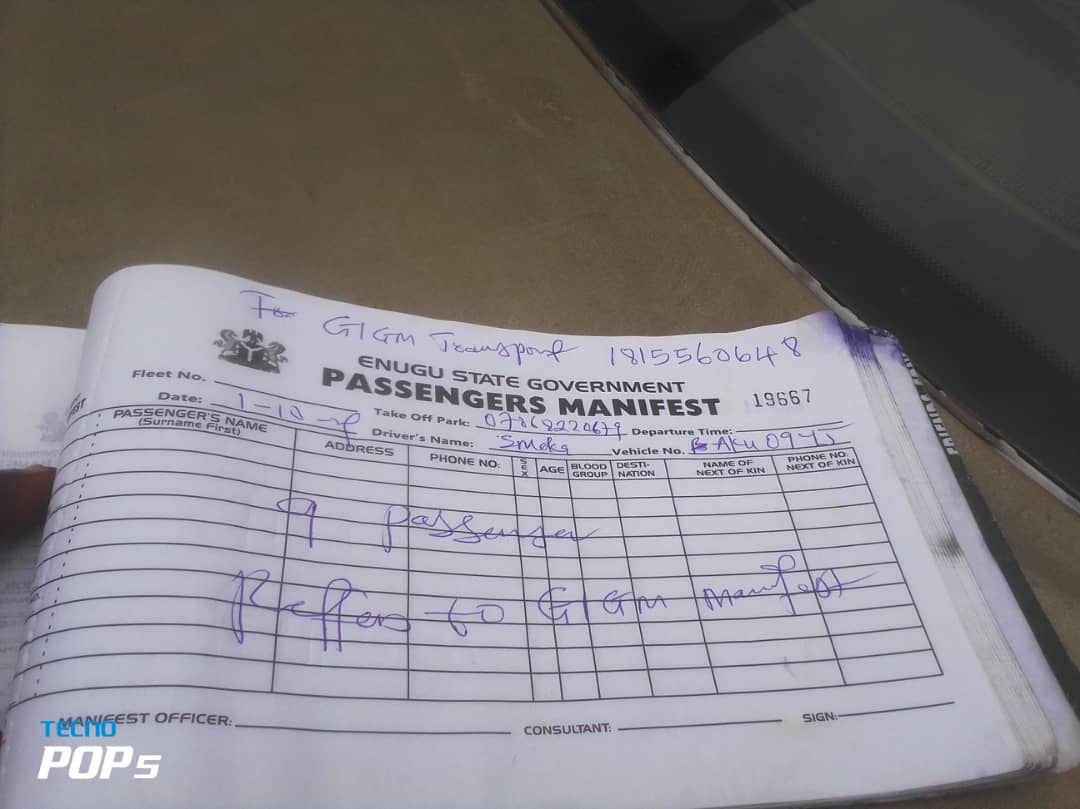 For GIGM Transport 1815560648
ENUGU STATE GOVERNMENT
PASSENGERS MANIFEST 19667
Fleet No.
Date: 1-10- Take Off Park: 07868220679 Departure Time:
Driver's Name: Smoka Vehicle No. AKU 09YJ
PASSENGER'S NAME (Surname First) ADDRESS PHONE NO: SEX AGE BLOOD GROUP DESTI-NATION NAME OF NEXT OF KIN PHONE NO: NEXT OF KIN
9 passenger
Reffers to GIGM manifest
MANIFEST OFFICER: CONSULTANT: SIGN:
TECNO
POP5